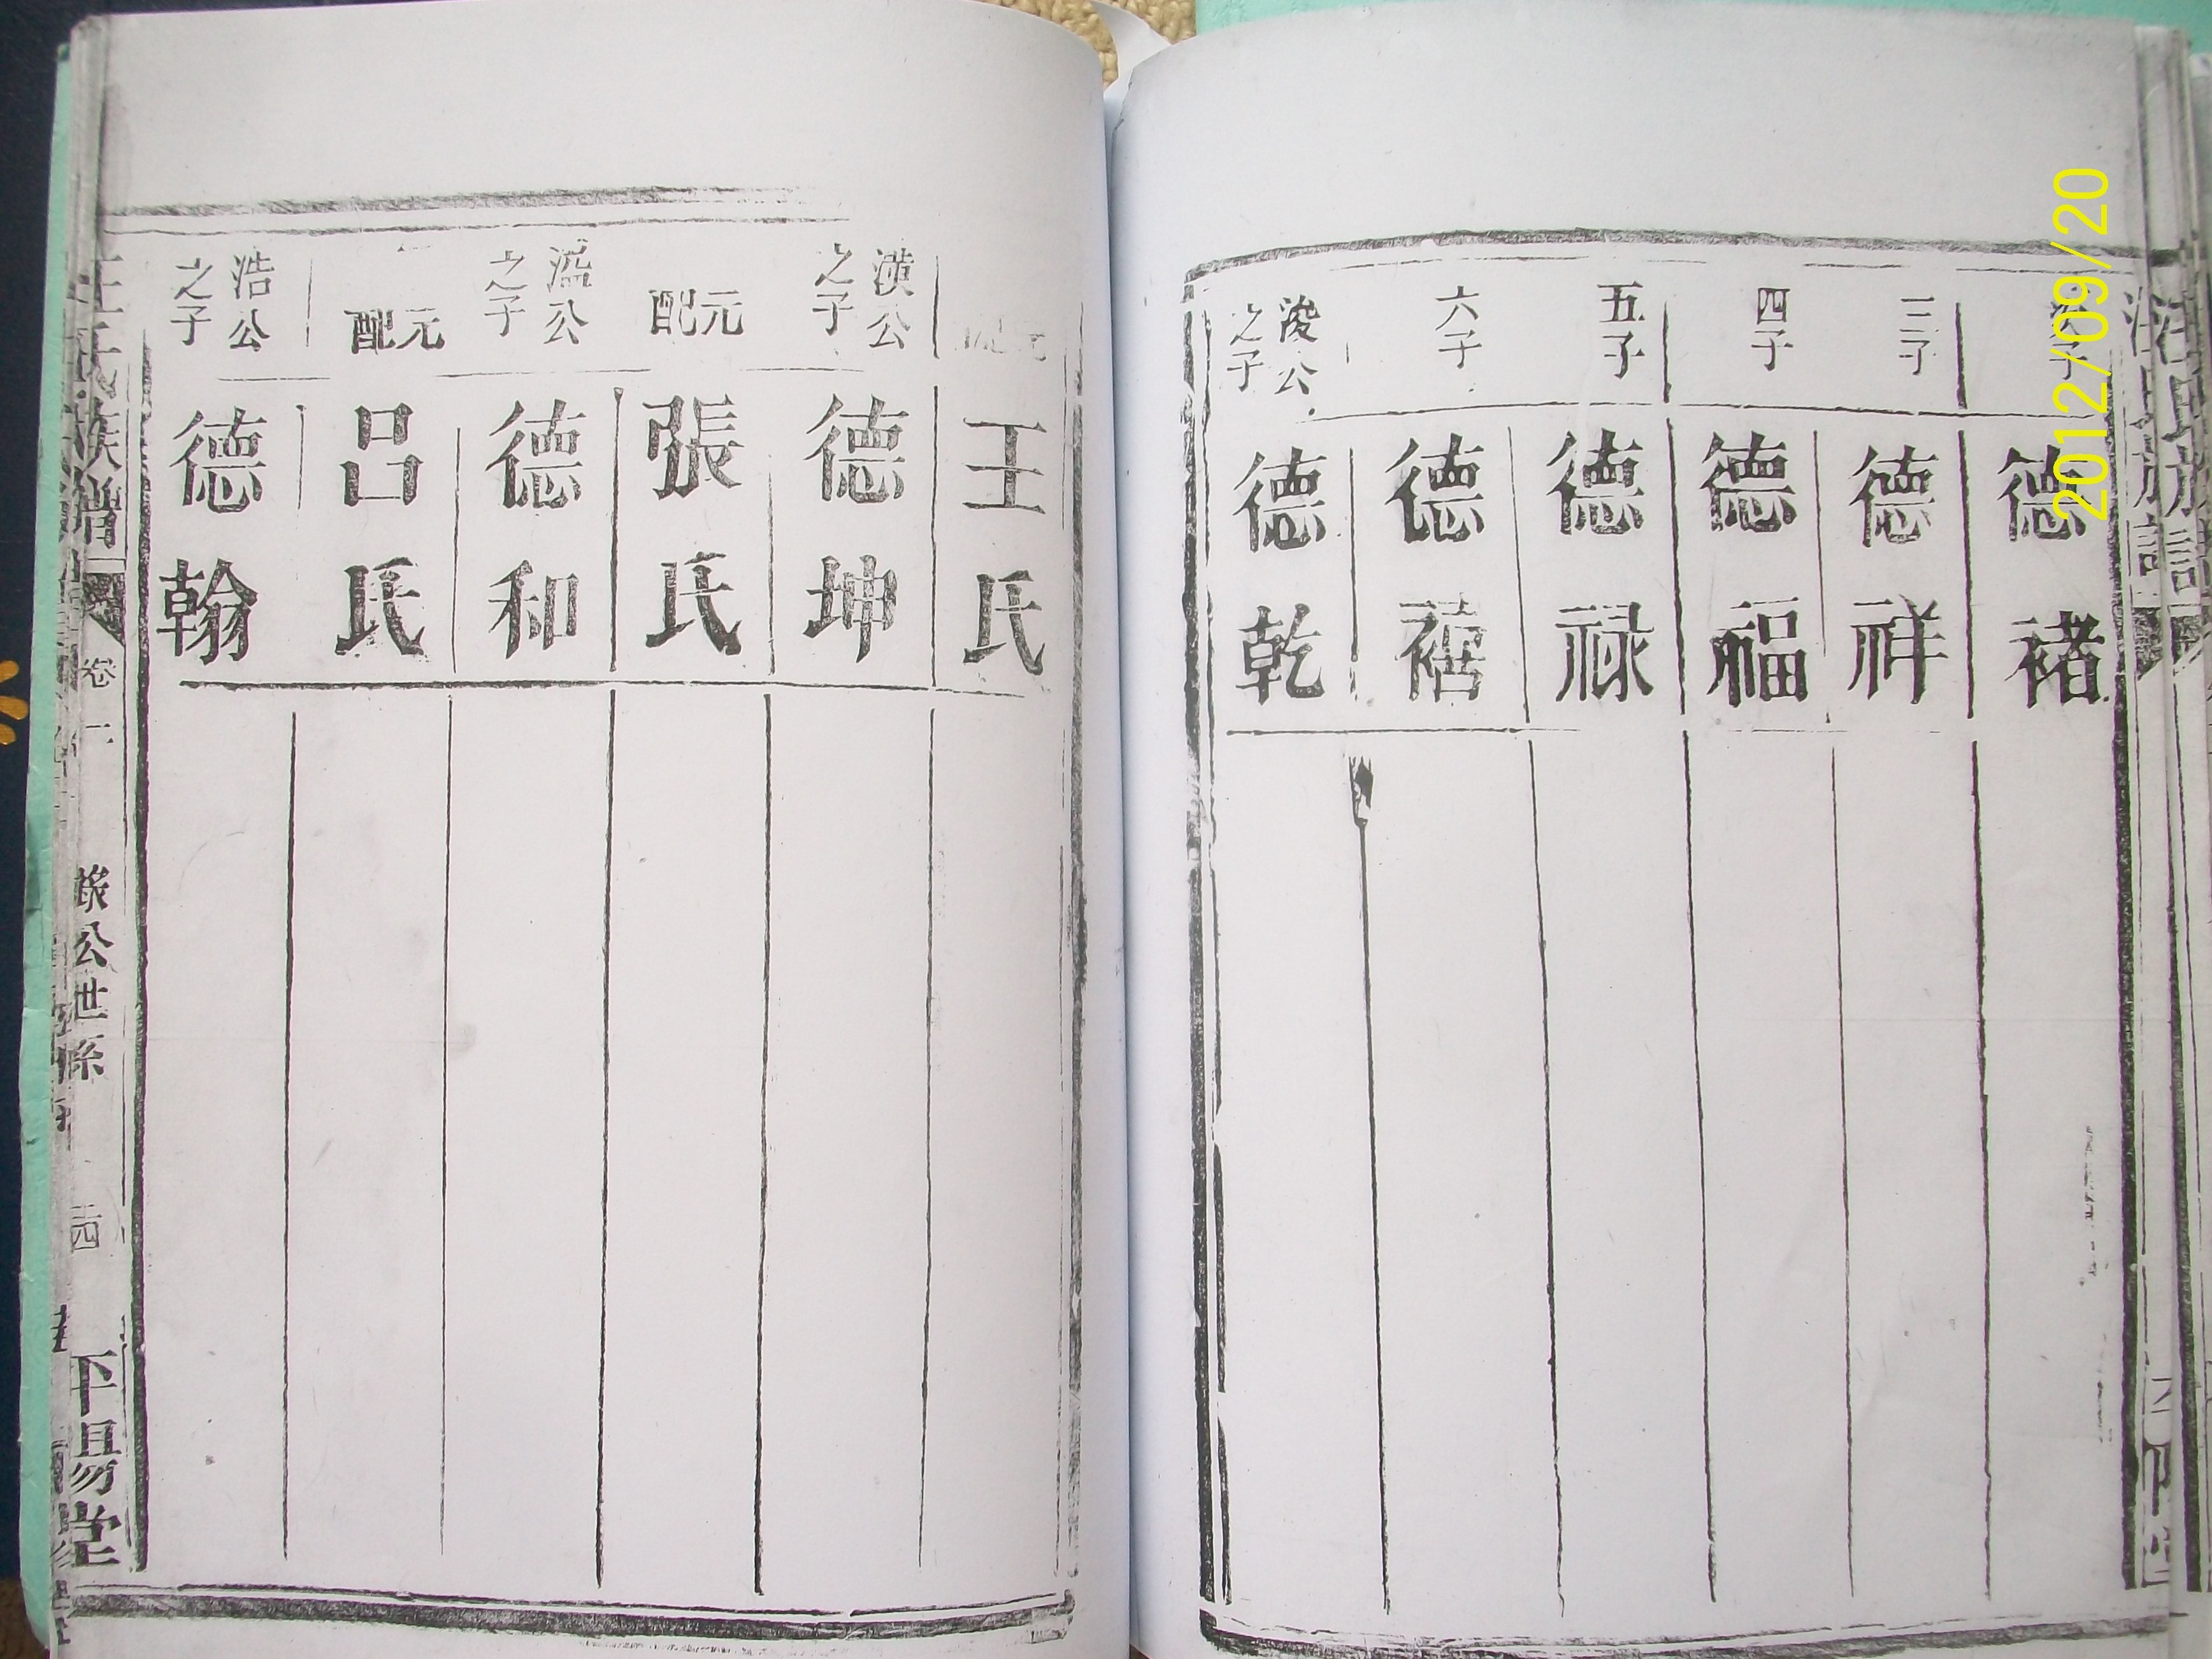 子
德褚
三子
德祥
四子
德福
五子
德禄
六子
德
浚公
之子
德乾
元配
王氏
潢公
之子
德坤
元配
張氏
溢公
之子
德和
元配
吕氏
浩公
之子
德翰
汪氏族譜
卷一
公世系
四
平易堂
2012/09/20